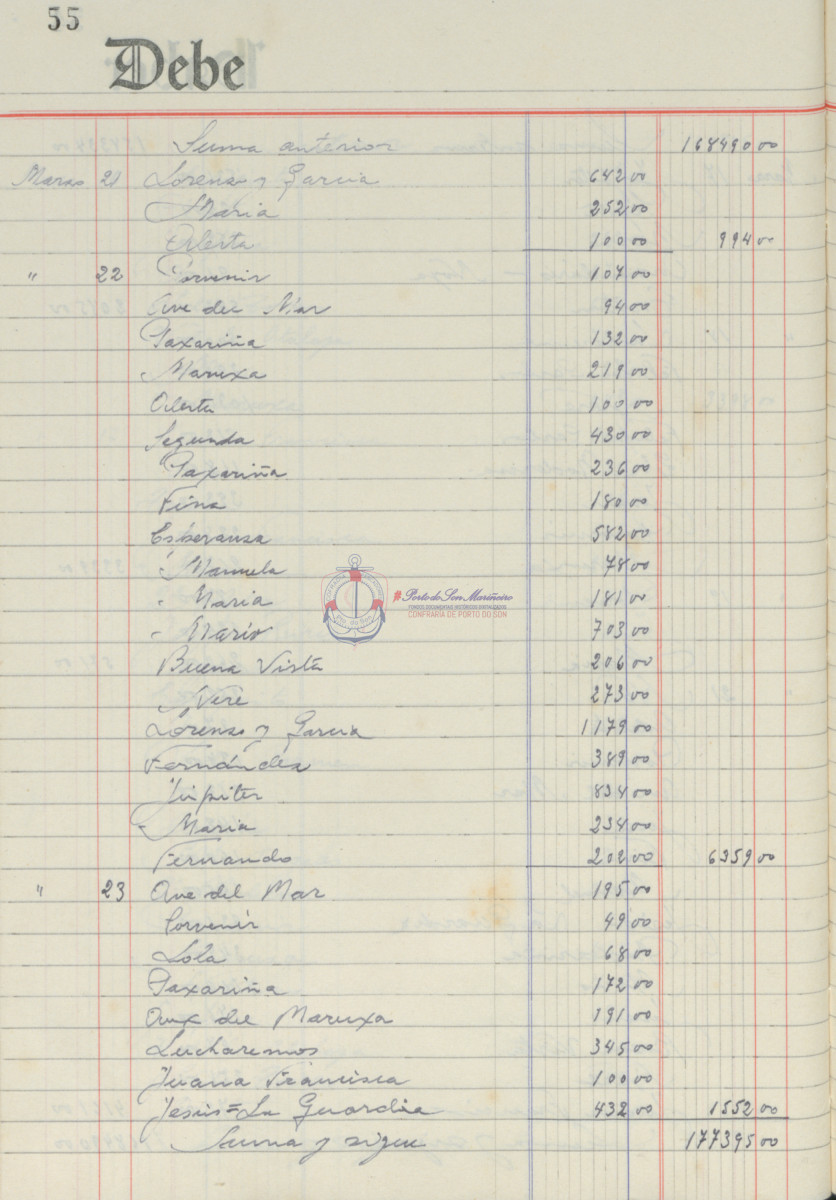 55
Debe
Suma anterior 168490 00
Marzo 21 Lorenzo y Garcia 642 00
Maria 252 00
Alerta 100 00 994 00
" 22 Porvenir 107 00
Ave del Mar 94 00
Paxariña 132 00
Maruxa 219 00
Alerta 100 00
Segunda 430 00
Paxariña 236 00
Fina 180 00
Esperanza 582 00
Manuela 78 00
Maria 181 00
Mario 703 00
Buena Vista 206 00
Nere 273 00
Lorenzo y Garcia 1179 00
Fernández 389 00
Júpiter 834 00
Maria 234 00
Fernando 202 00 6359 00
" 23 Ave del Mar 195 00
Porvenir 49 00
Lola 68 00
Paxariña 172 00
Aux del Maruxa 191 00
Lucharemos 345 00
Juana Francisca 100 00
Jesús = La Guardia 432 00 1552 00
Suma y sigue 177395 00
#PortodoSonMariñeiro
FONDOS DOCUMENTAIS HISTÓRICOS DIXITALIZADOS
CONFRARÍA DE PORTO DO SON